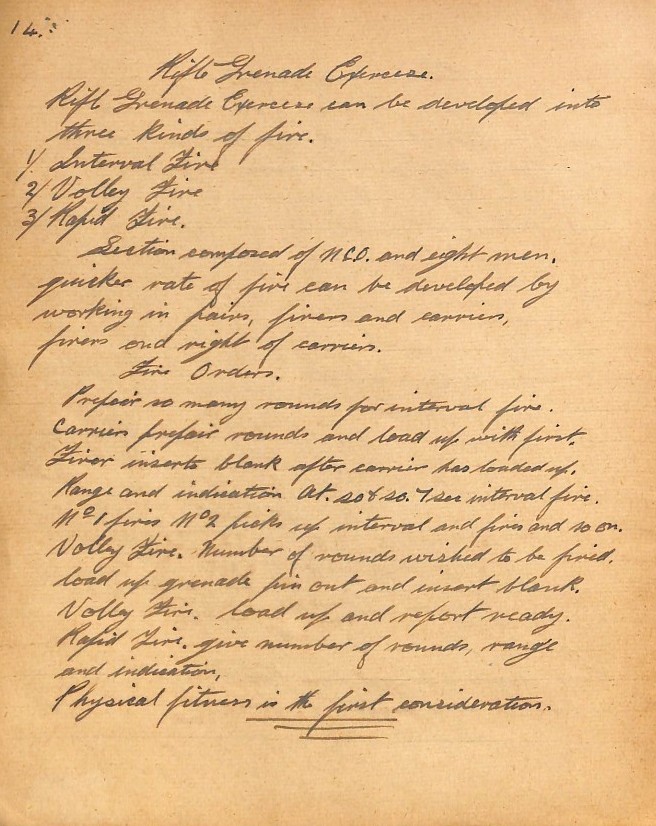 14.
Rifle Grenade Exercese.
Rifle Grenade Exercese can be developed into
three kinds of fire.
1/ Interval Fire
2/ Volley Fire
3/ Rapid Fire.
Section composed of N.C.O. and eight men.
quicker rate of fire can be developed by
working in pairs, firers and carriers,
firers on right of carriers.
Fire Orders.
Prepair so many rounds for interval fire.
Carriers prepair rounds and load up with first.
Firer inserts blank after carrier has loaded up.
Range and indication At. so & so. 7 sec interval fire.
No 1 fires No 2 picks up interval and fires and so on.
Volley Fire. Number of rounds wished to be fired.
load up grenade pin out and insert blank.
Volley Fire. load up and report ready.
Rapid Fire. give number of rounds, range
and indication,
Physical fitness is the first consideration.